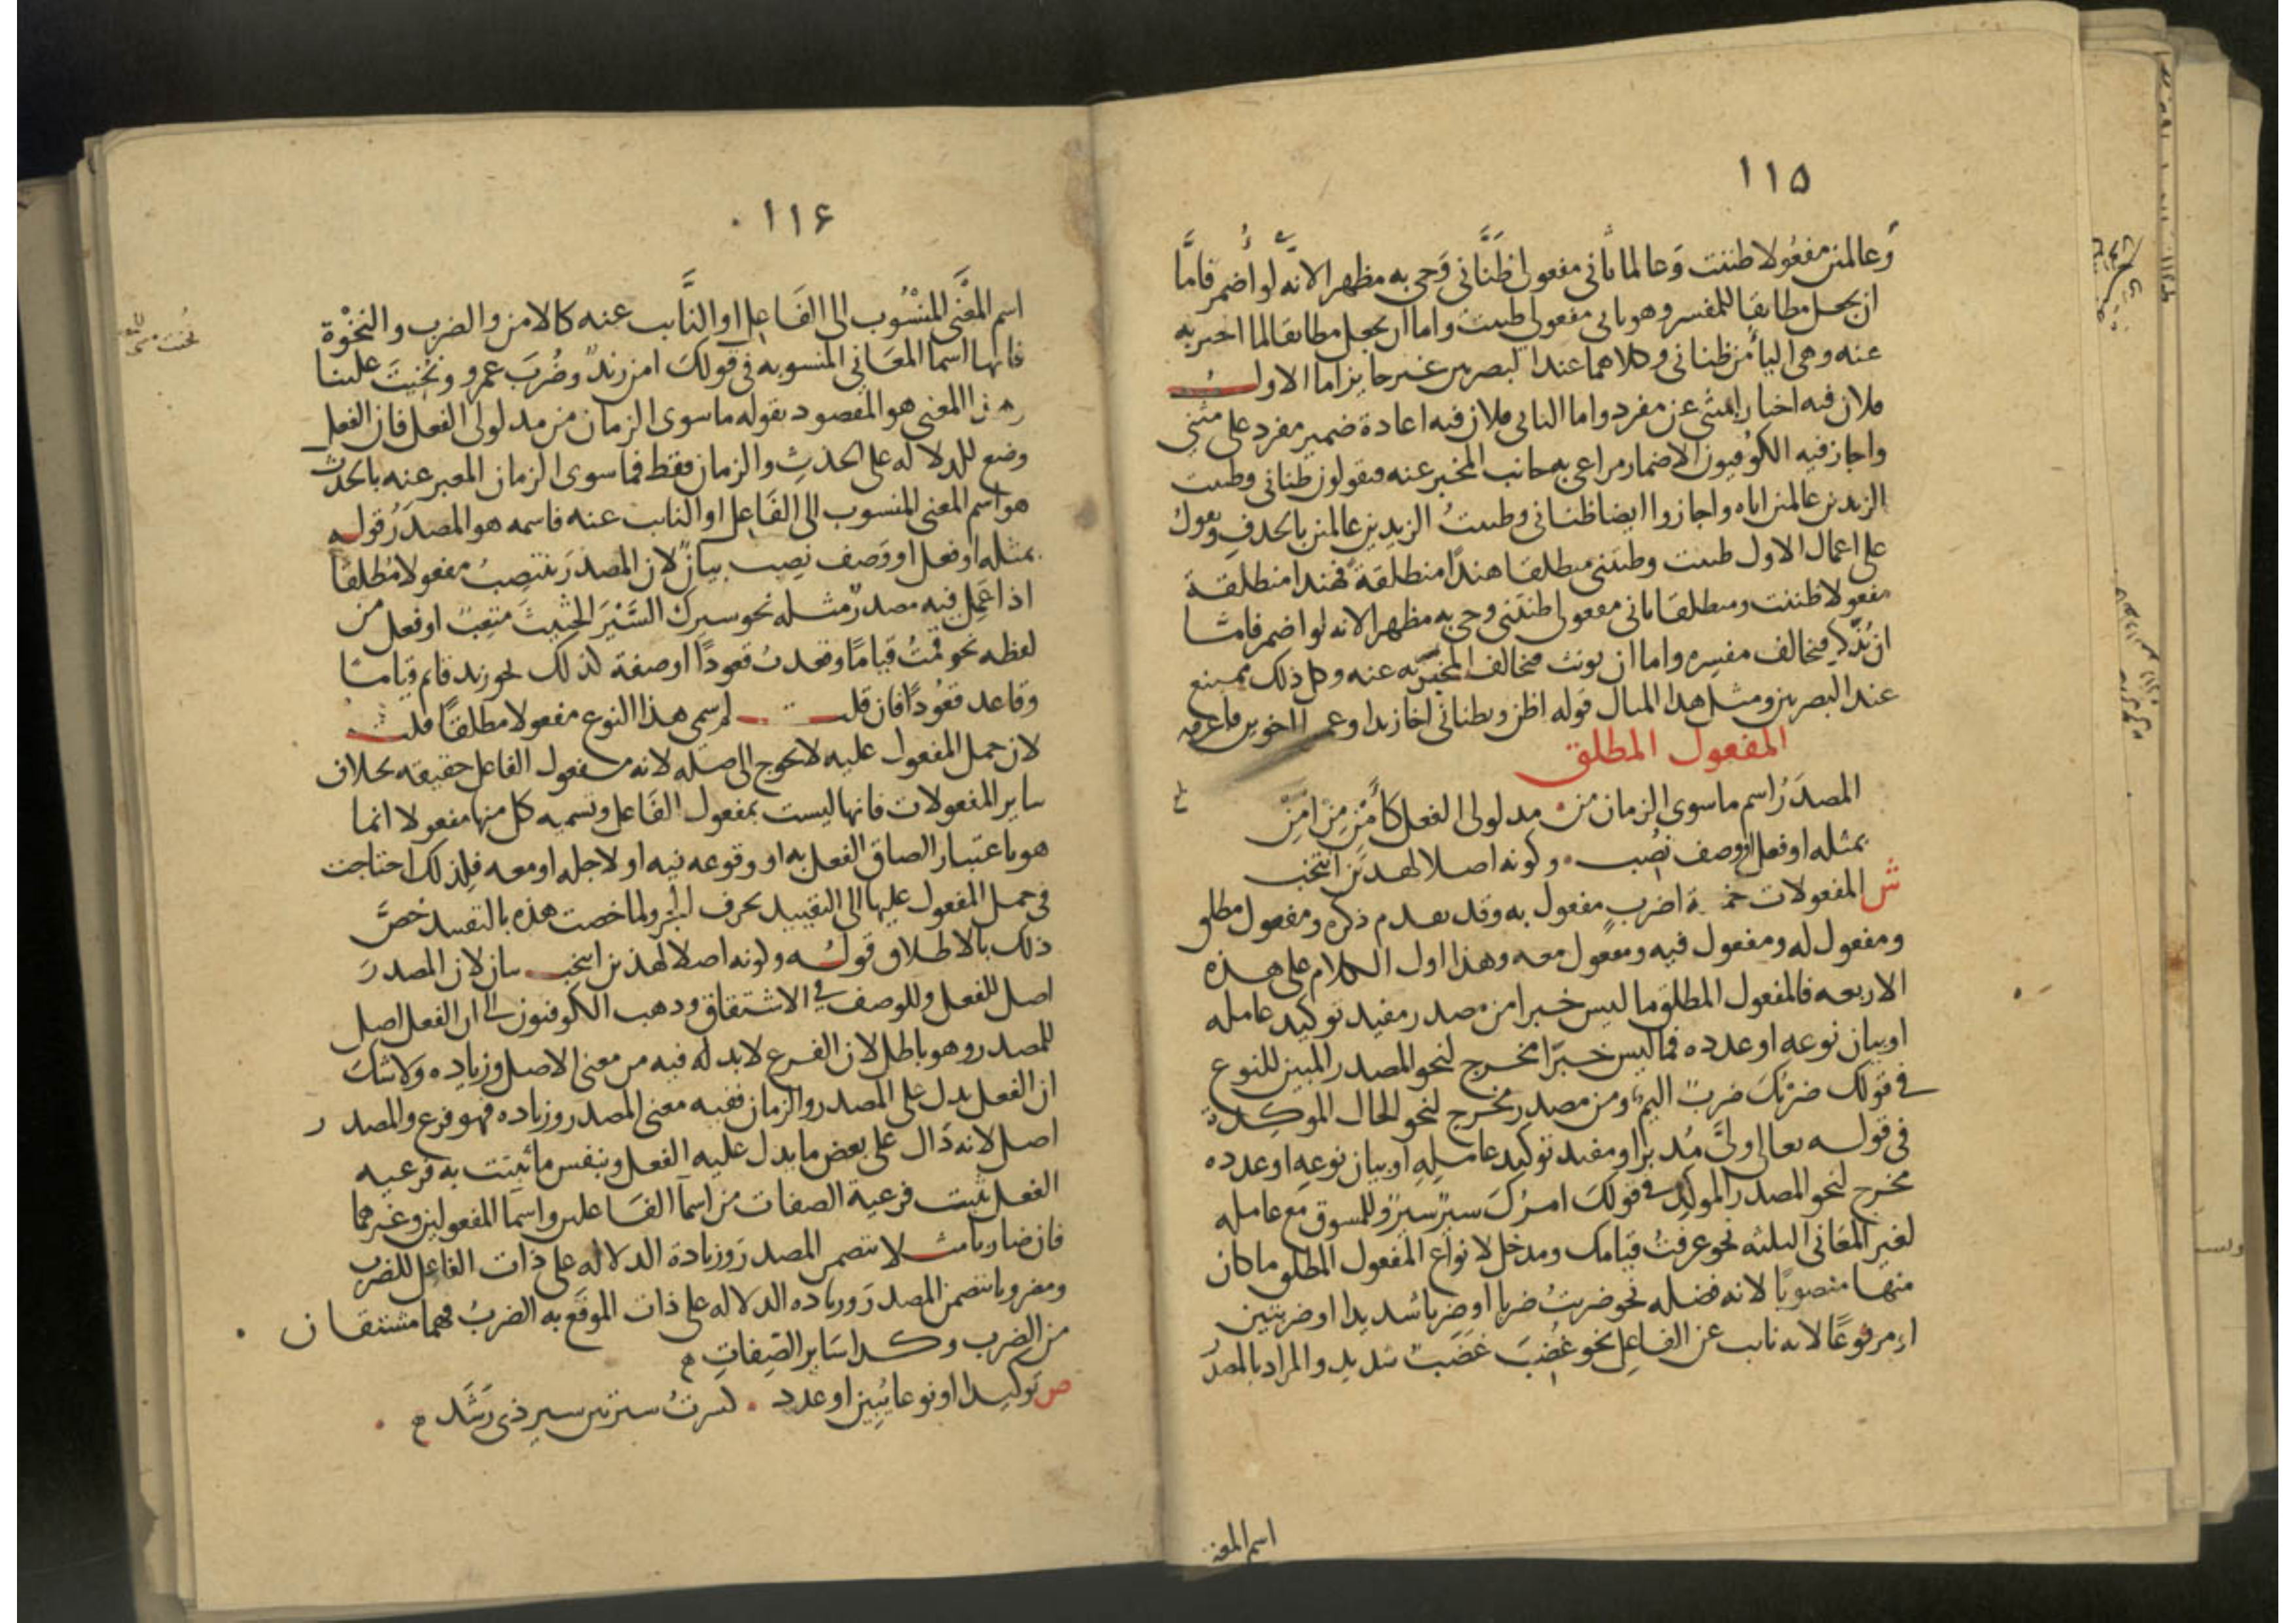 ١١٥
وَعالمين مفعُولا ظننت وَعالما ثاني مفعولي ظَنَّاني وَجي به مظهرا لانَّه لو أُضمر فامَّا
ان يجعل مطابقا للمفسر وهو ثاني مفعولي ظننت واما ان يجعل مطابقا لما اخبر به
عنه وهي الياء من ظناني وكلاهما عند البصريين غير جايز اما الاول
فلان فيه اخبارا بمثنى عن مفرد واما الثاني فلان فيه اعادة ضمير مفرد على مثنى
واجاز فيه الكوفيون الاضمار مراعى به جانب المخبر عنه فيقولون ظناني وظننت
الزيدين عالمين اياه واجازوا ايضا ظناني وظننتُ الزيدين عالمين بالحذف وتقول
على اعمال الاول ظننت وظنتني منطلقا هندا منطلقةً فهندا منطلقة
مفعولا ظننت ومنطلقا ثاني مفعولي ظنتني وجي به مظهرا لانه لو اضمر فاما
ان يُذَكَّر فيخالف مفسره واما ان يونث فيخالف المُخبَر به عنه وكل ذلك ممتنع
عند البصريين ومثل هذا المثال قوله اظن ويظناني اخا زيدا وعمرا اخوين فاعرفه
المفعول المطلق
المصدَرُ اسم ما سوى الزمان من مدلولي الفعل كأَمْنٍ مِنْ أَمِنْ
بمثله او فعل او وصف نُصِب وكونه اصلا لهذين انتُخِب
ش المفعولات خمسة اضربٍ مفعول به وقد تقدم ذكره ومفعول مطلق
ومفعول له ومفعول فيه ومفعول معه وهذا اول الكلام على هذه
الاربعه فالمفعول المطلق ما ليس خبرا من مصدر مفيد توكيد عامله
او بيان نوعه او عدده فما ليس خبرًا مخرج لنحو المصدر المبين للنوع
في قولك ضربُكَ ضربٌ اليمٌ ومن مصدر مخرج لنحو الحال الموكدة
في قوله تعالى ولَّى مُدبرا ومفيد توكيد عامله او بيان نوعه او عدده
مخرج لنحو المصدر الموكد في قولك امرُكَ سيرٌ سيرٌ وللمسوق مع عامله
لغير المعَاني الثلثه نحو عرفتُ قيامك ومدخل لانواع المفعول المطلق ما كان
منها منصوبًا لانه فضله نحو ضربتُ ضربا او ضربا شديدا او ضربتين
او مرفوعًا لانه نايب عن الفاعل نحو غُضِبَ غَضَبٌ شديد والمراد بالمصدَر
اسم المعنى
١١٦
اسم المعْنَى المنْسُوب الى الفَاعل او النَّايب عنه كالامن والضرب والنخْوَة
فانها اسما المعَاني المنسوبه في قولكَ امن زيدٌ وضُربَ عمرو ونُخِيتَ علينا
وهذا المعنى هو المقصود بقوله ما سوى الزمان من مدلولي الفعل فان الفعل
وضع للدلاله على الحدثِ والزمان فقط فما سوى الزمان المعبر عنه بالحدث
هو اسم المعنى المنسوب الى الفَاعل او النايب عنه فاسمه هو المصدَرُ قوله
بمثله او فعل او وَصف نصِب بيانٌ لان المصدَر ينتصِبُ مفعولا مُطلقًا
اذا عَمِل فيه مصدرٌ مثله نحو سيرك السَّيْرَ الحثيثَ متعِبٌ او فعل من
لفظه نحو قمْتُ قيامًا وقعَدتُ قعودًا او صفة لذلك نحو زيد قايم قيامًا
وقاعد قعُودًا فان قلت لم سمى هذا النوع مفعولا مطلقًا قلت
لان حمل المفعول عليه لا يحوج الى صله لانه مفعول الفاعل حقيقه بخلاف
ساير المفعولات فانها ليست بمفعول الفَاعل وتسميه كل منها مفعولا انما
هو باعتبار الصاق الفعل به او وقوعه فيه او لاجله او معه فلذلك احتاجت
في حمل المفعول عليها الى التقييد بحرف الجر ولما خصت هذه بالتقييد خصَّ
ذلك بالاطلاق قوله وكونه اصلا لهذين انتخب بيان لان المصدرَ
اصل للفعل وللوصف في الاشتقاق وذهب الكوفيون الى ان الفعل اصل
للمصدر وهو باطل لان الفرع لابد له فيه من معنى الاصل وزياده ولا شكَ
ان الفعل يدل على المصدر والزمان ففيه معنى المصدر وزياده فهو فرع والمصدر
اصل لانه دَال على بعض ما يدل عليه الفعل وبنفس ما ثبتت به فرعيه
الفعل ثبت فرعية الصفات من اسمآ الفَاعلين واسمآ المفعولين وغيرهما
فان ضاربا مثلا يتضمن المصدرَ وزيادة الدلاله على ذات الفاعل للضرب
ومضروبا يتضمن المصدرَ وزياده الدلاله على ذات الموقَع به الضربُ فهما مشتقان
من الضرب وكذا سَاير الصِفاتِ
ص توكيدا او نوعا يُبِين او عدد كسرتُ سيرتين سير ذي رَشَد